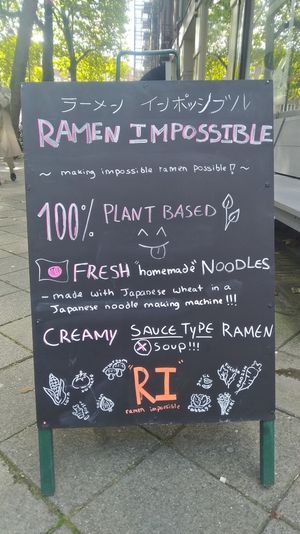 ラーメン インポッシブル
RAMEN IMPOSSIBLE
~ making impossible ramen possible!? ~
100% PLANT BASED
FRESH "homemade" NOODLES
- made with Japanese wheat in a
Japanese noodle making machine!!!
CREAMY SAUCE TYPE RAMEN
soup!!!
"RI"
ramen impossible